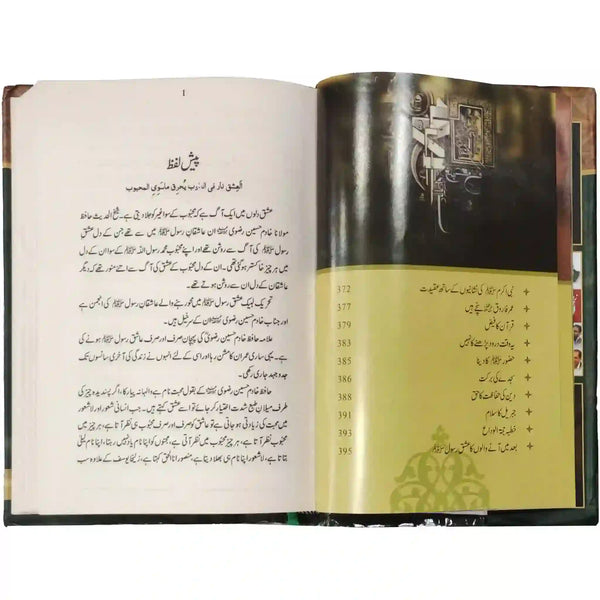 نبی اکرم ﷺ کی نشانیوں کے ساتھ عقیدت 372
عمر فاروق بچتے ہیں 377
قرآن کا فیض 379
یہ وقت درود پڑھنے کا نہیں 383
حضور ﷺ کا دینا 385
سجدے کی برکت 386
دین کی حفاظت کا حق 388
جبریل کا سلام 391
خطبہ حجۃ الوداع 393
بعد میں آنے والوں کا عشق رسول ﷺ 395
1
پیش لفظ
العشق نار فی القلوب یحرق ماسوی المحبوب
عشق دلوں میں ایک آگ ہے کہ محبوب کے سوا غیر کو جلا دیتی ہے۔ شیخ الحدیث حافظ
مولانا خادم حسین رضوی ان عاشقان رسول ﷺ میں سے تھے جن کے دل عشق
رسول ﷺ کی آگ سے روشن تھے اور اپنے محبوب محمد رسول اللہ ﷺ کے سوا ان کے دل
میں ہر چیز خاکستر ہو گئی تھی۔ ان کے دل محبوب کے عشق کی آگ سے اتنے منور تھے کہ دیگر
عاشقوں کے دلوں کو بھی روشن کرتے تھے۔
تحریک لبیک عشق رسول ﷺ میں مخمور ہونے والے عاشقان رسول ﷺ کی انجمن ہے
اور جناب خادم حسین رضوی ان کے سرخیل ہیں۔
علامہ خادم حسین رضوی کی پہچان صرف اور صرف عاشق رسول ﷺ ہونے کی
ہے۔ یہی ساری عمر ان کا مشن رہا اور اسی کے لئے انہوں نے زندگی کی آخری سانسوں تک
جدوجہد جاری رکھی۔
حافظ خادم حسین رضوی کے بقول محبت نام ہے والہانہ پیار کا، اگر پسندیدہ چیز کی
طرف میلان طبع شدت اختیار کر جائے تو اسے عشق کہتے ہیں۔ جب انسانی شعور اور لاشعور
میں محبت کی زیادتی ہو جاتی ہے تو عاشق کو صرف اور صرف محبوب ہی نظر آتا ہے، ہر چیز میں
محبوب نظر آتا ہے، ہر چیز محبوب نظر آتی ہے، مجنوں کو اپنا نام یاد نہیں رہتا، اپنا نام لیلیٰ
بتاتا ہے، لاشعور اپنا نام ہی بھلا دیتا ہے، منصور انا الحق کہتا ہے، زلیخا یوسف کے علاوہ سب